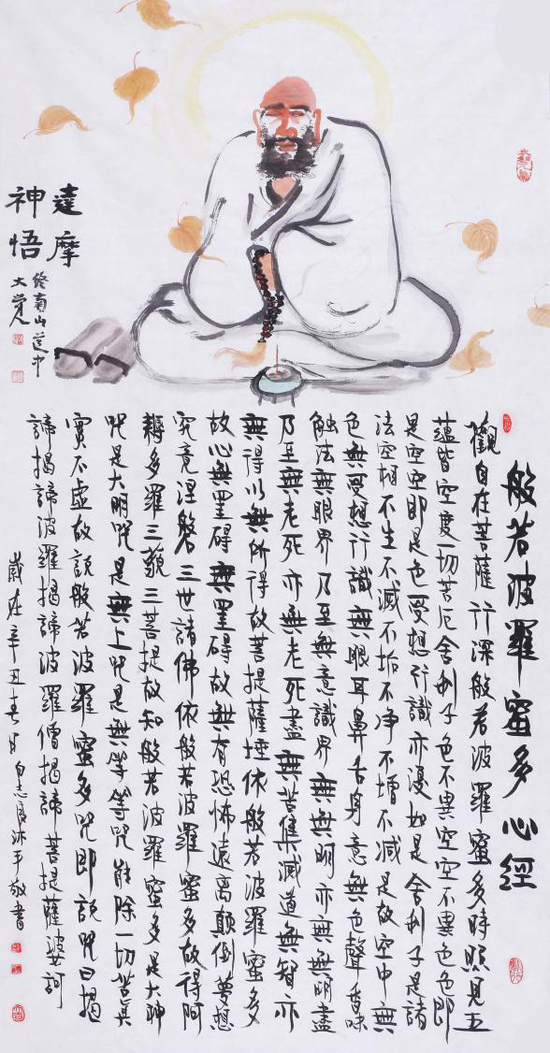 達摩
神悟
終南山道中
大覺
般若波羅蜜多心經
觀自在菩薩行深般若波羅蜜多時照見五
蘊皆空度一切苦厄舍利子色不異空空不異色色即
是空空即是色受想行識亦復如是舍利子是諸
法空相不生不滅不垢不净不增不减是故空中無
色無受想行識無眼耳鼻舌身意無色聲香味
触法無眼界乃至無意識界無無明亦無無明盡
乃至無老死亦無老死盡無苦集滅道無智亦
無得以無所得故菩提薩埵依般若波羅蜜多
故心無罣碍無罣碍故無有恐怖遠离顛倒夢想
究竟涅磐三世諸佛依般若波羅蜜多故得阿
耨多羅三藐三菩提故知般若波羅蜜多是大神
咒是大明咒是無上咒是無等等咒能除一切苦真
實不虚故説般若波羅蜜多咒即説咒曰揭
諦揭諦波羅揭諦波羅僧揭諦菩提薩婆訶
歲在辛丑春月白志沐手敬書